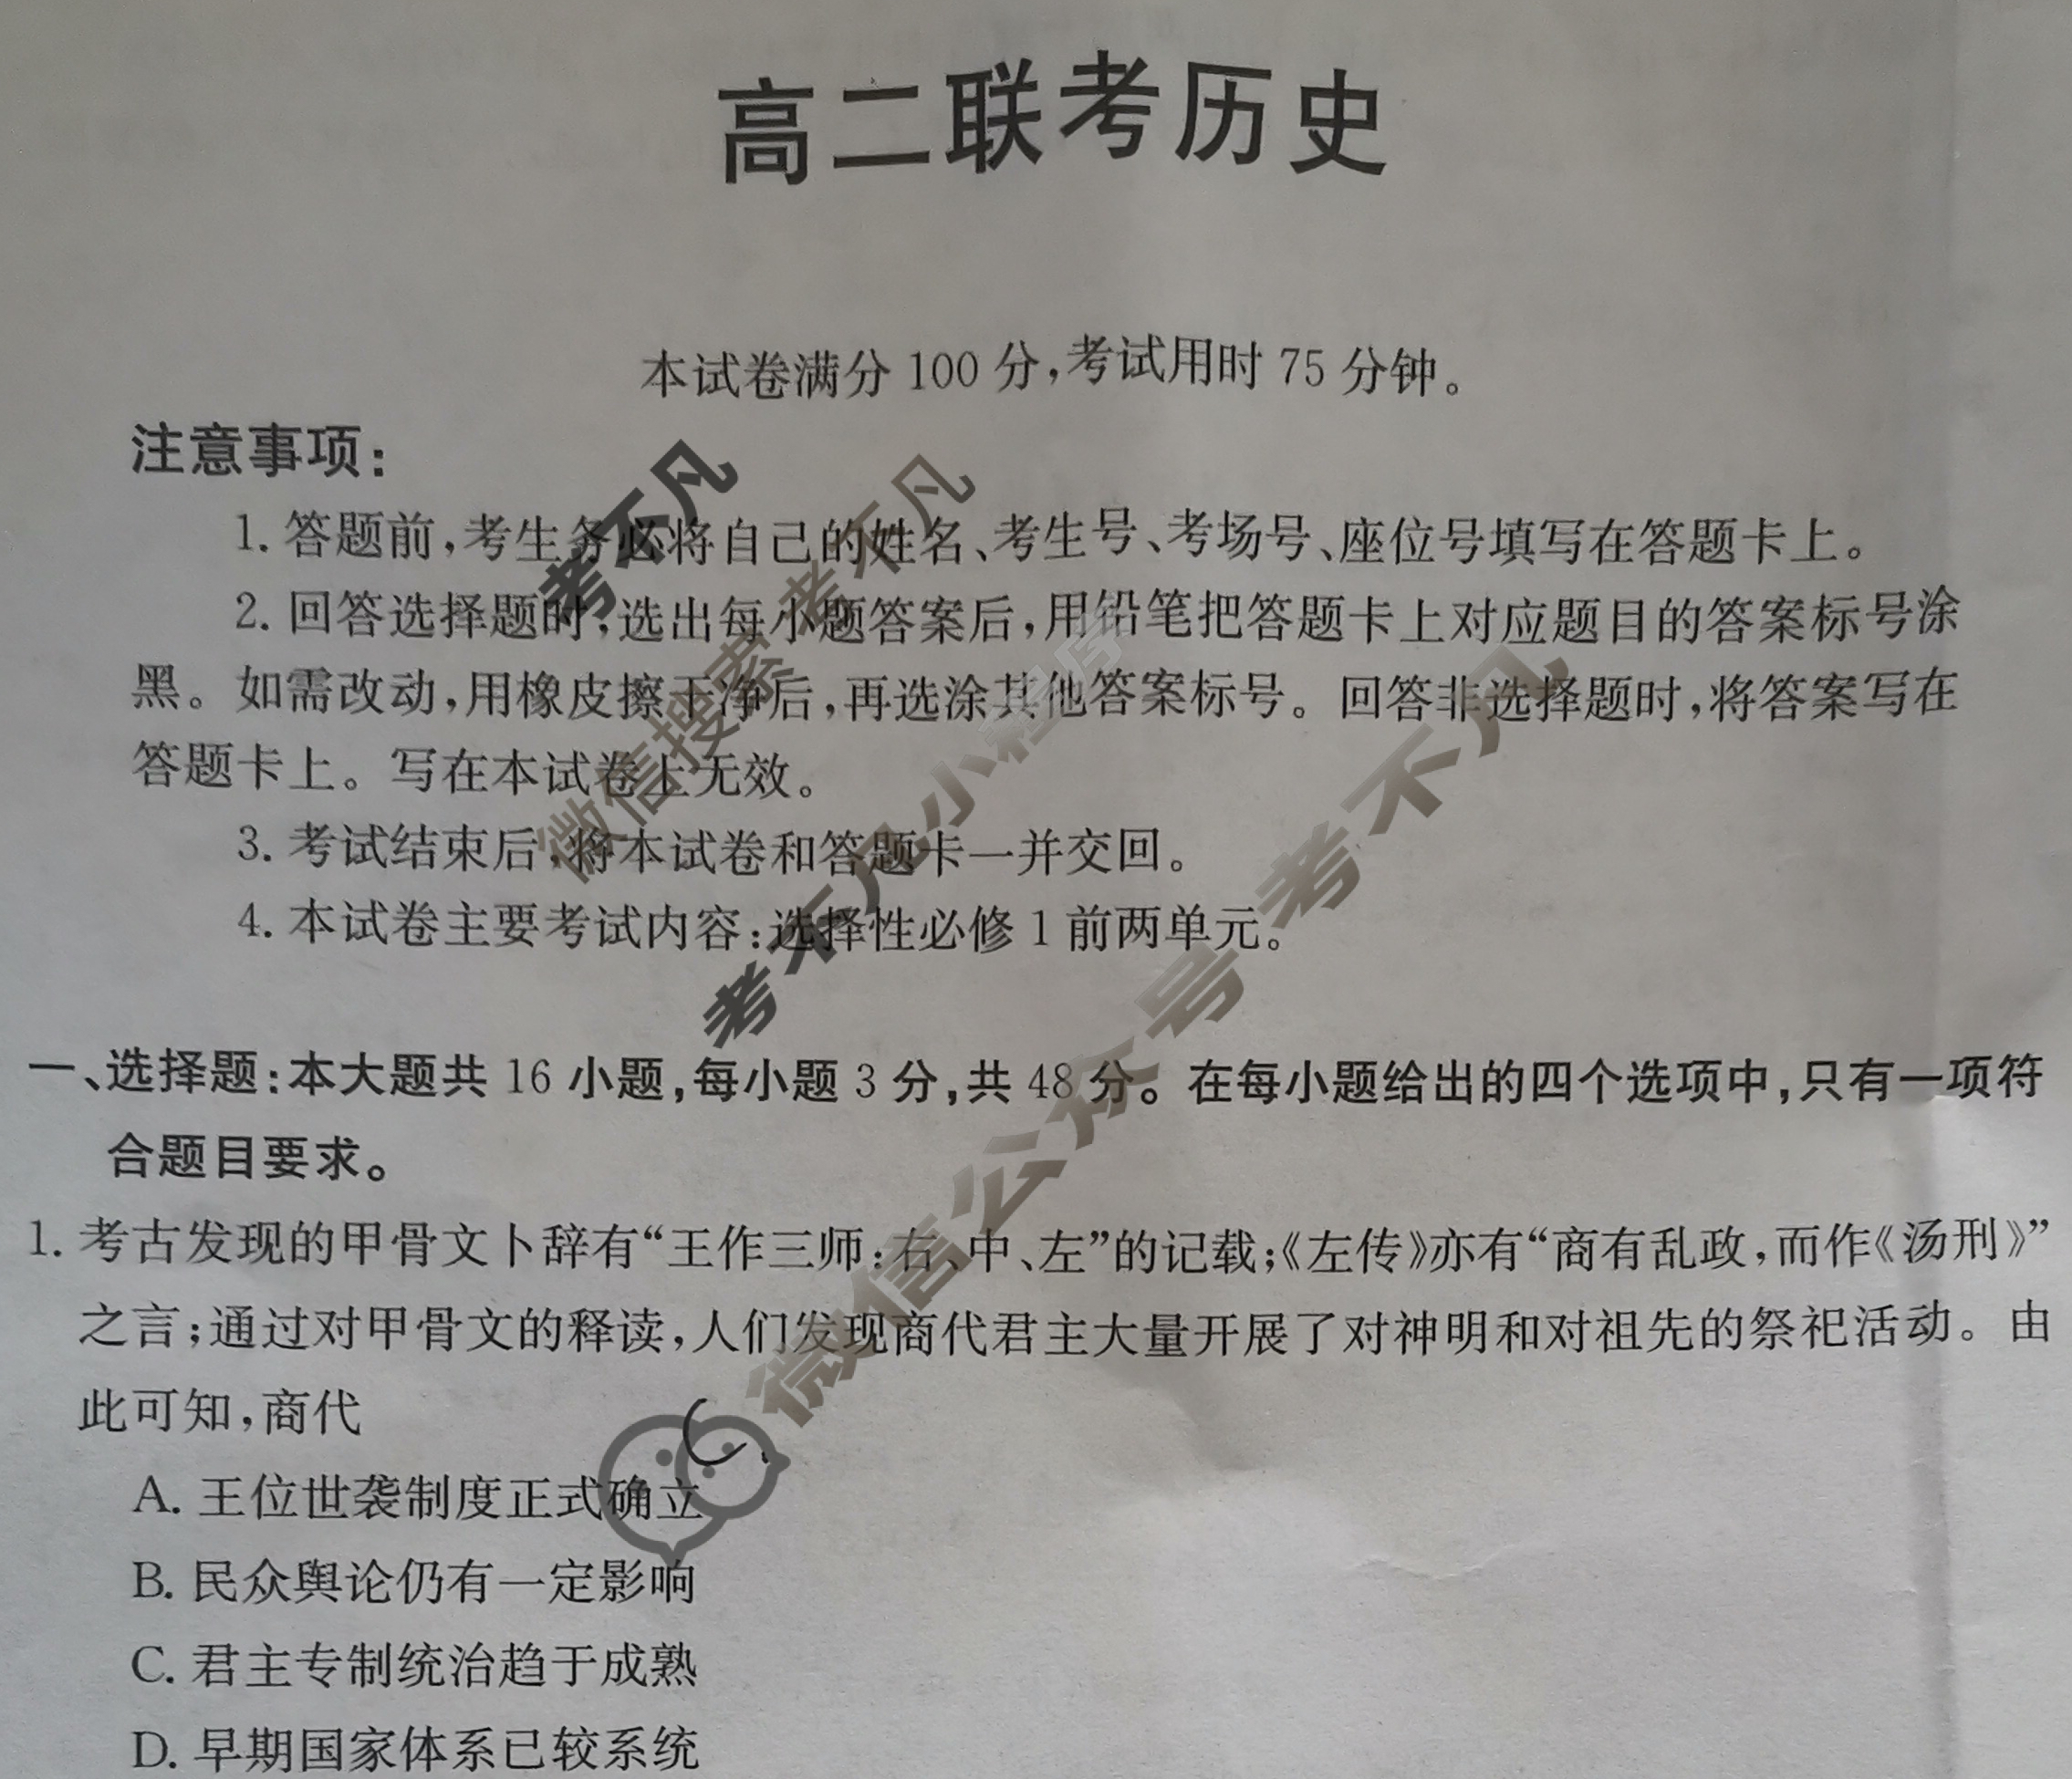 高二联考历史
本试卷满分 100 分,考试用时 75 分钟。
注意事项:
1. 答题前,考生务必将自己的姓名、考生号、考场号、座位号填写在答题卡上。
2. 回答选择题时,选出每小题答案后,用铅笔把答题卡上对应题目的答案标号涂
黑。如需改动,用橡皮擦干净后,再选涂其他答案标号。回答非选择题时,将答案写在
答题卡上。写在本试卷上无效。
3. 考试结束后,将本试卷和答题卡一并交回。
4. 本试卷主要考试内容:选择性必修 1 前两单元。
考不凡
微信搜索 考不凡
考不凡小程序
微信公众号 考不凡
一、选择题:本大题共 16 小题,每小题 3 分,共 48 分。在每小题给出的四个选项中,只有一项符
合题目要求。
1. 考古发现的甲骨文卜辞有“王作三师:右、中、左”的记载;《左传》亦有“商有乱政,而作《汤刑》”
之言;通过对甲骨文的释读,人们发现商代君主大量开展了对神明和对祖先的祭祀活动。由
此可知,商代
A. 王位世袭制度正式确立
B. 民众舆论仍有一定影响
C. 君主专制统治趋于成熟
D. 早期国家体系已较系统